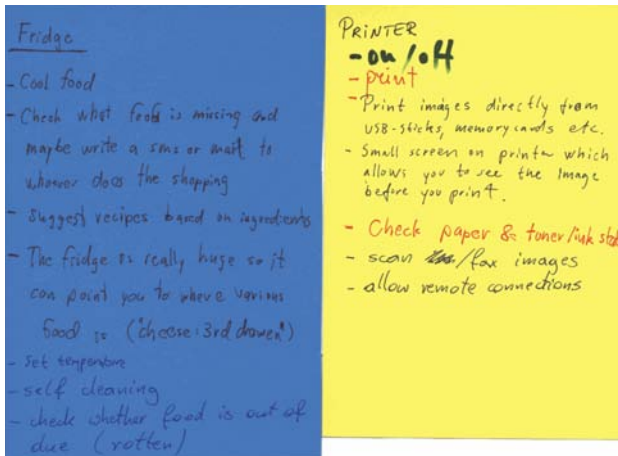 Fridge
- Cool food
- Check what food is missing and
maybe write a sms or mail to
whoever does the shopping
- Suggest recipes based on ingredients
- The fridge is really huge so it
can point you to where various
food is ("cheese: 3rd drawer")
- Set temperature
- self cleaning
- check whether food is out of
due (rotten)
PRINTER
- on/off
- print
- Print images directly from
USB-sticks, memory cards etc.
- Small screen on printer which
allows you to see the image
before you print.
- Check paper & toner/ink
- scan /fax images
- allow remote connections